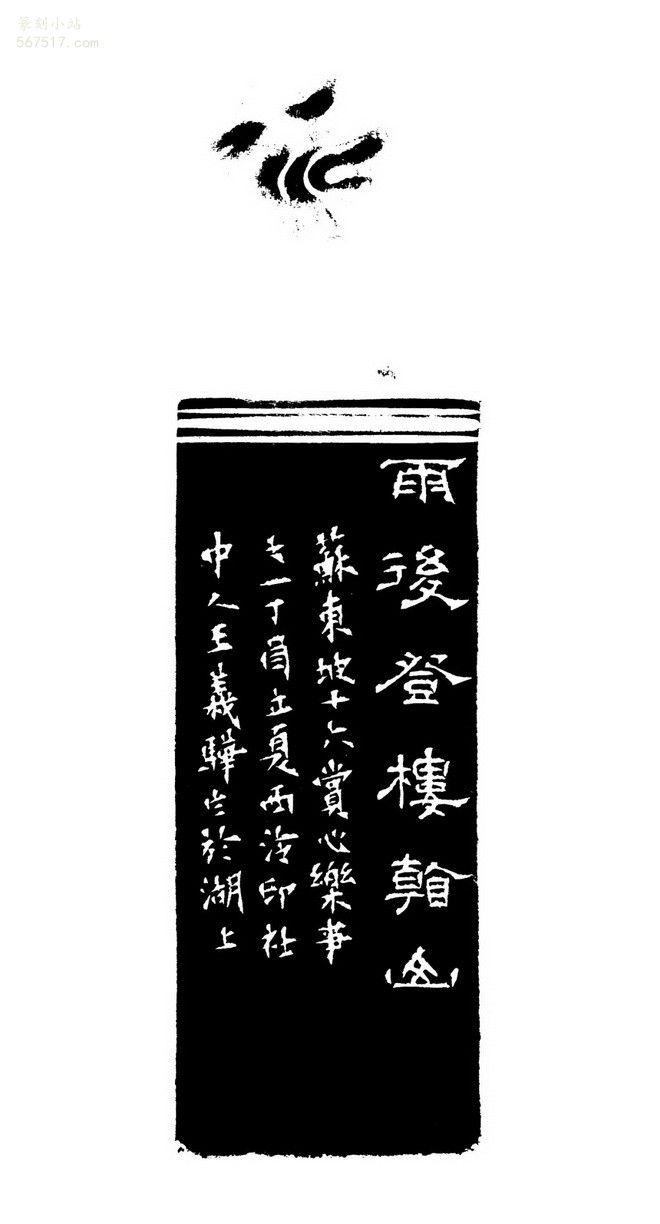 篆刻小站
567517.com
雨後登樓看山
蘇東坡十六賞心樂事
之一丁酉立夏西泠印社
中人王義驊作於湖上